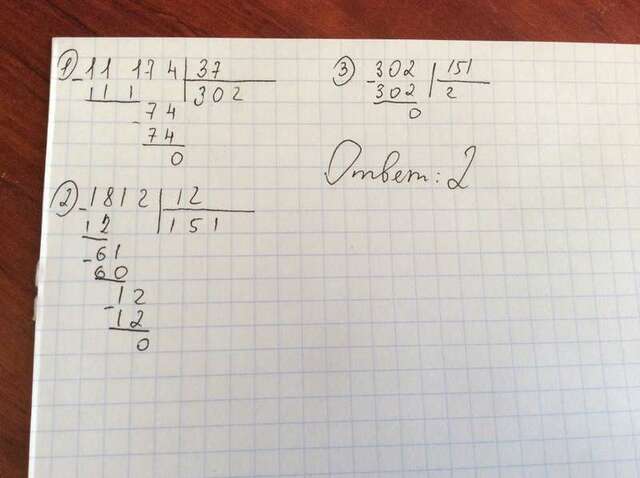 1) 11 174 | 37
- 111 | 302
- 74
74
0
2) 1812 | 12
- 12 | 151
- 61
60
- 12
12
0
3) 302 | 151
- 302 | 2
0
Ответ: 2